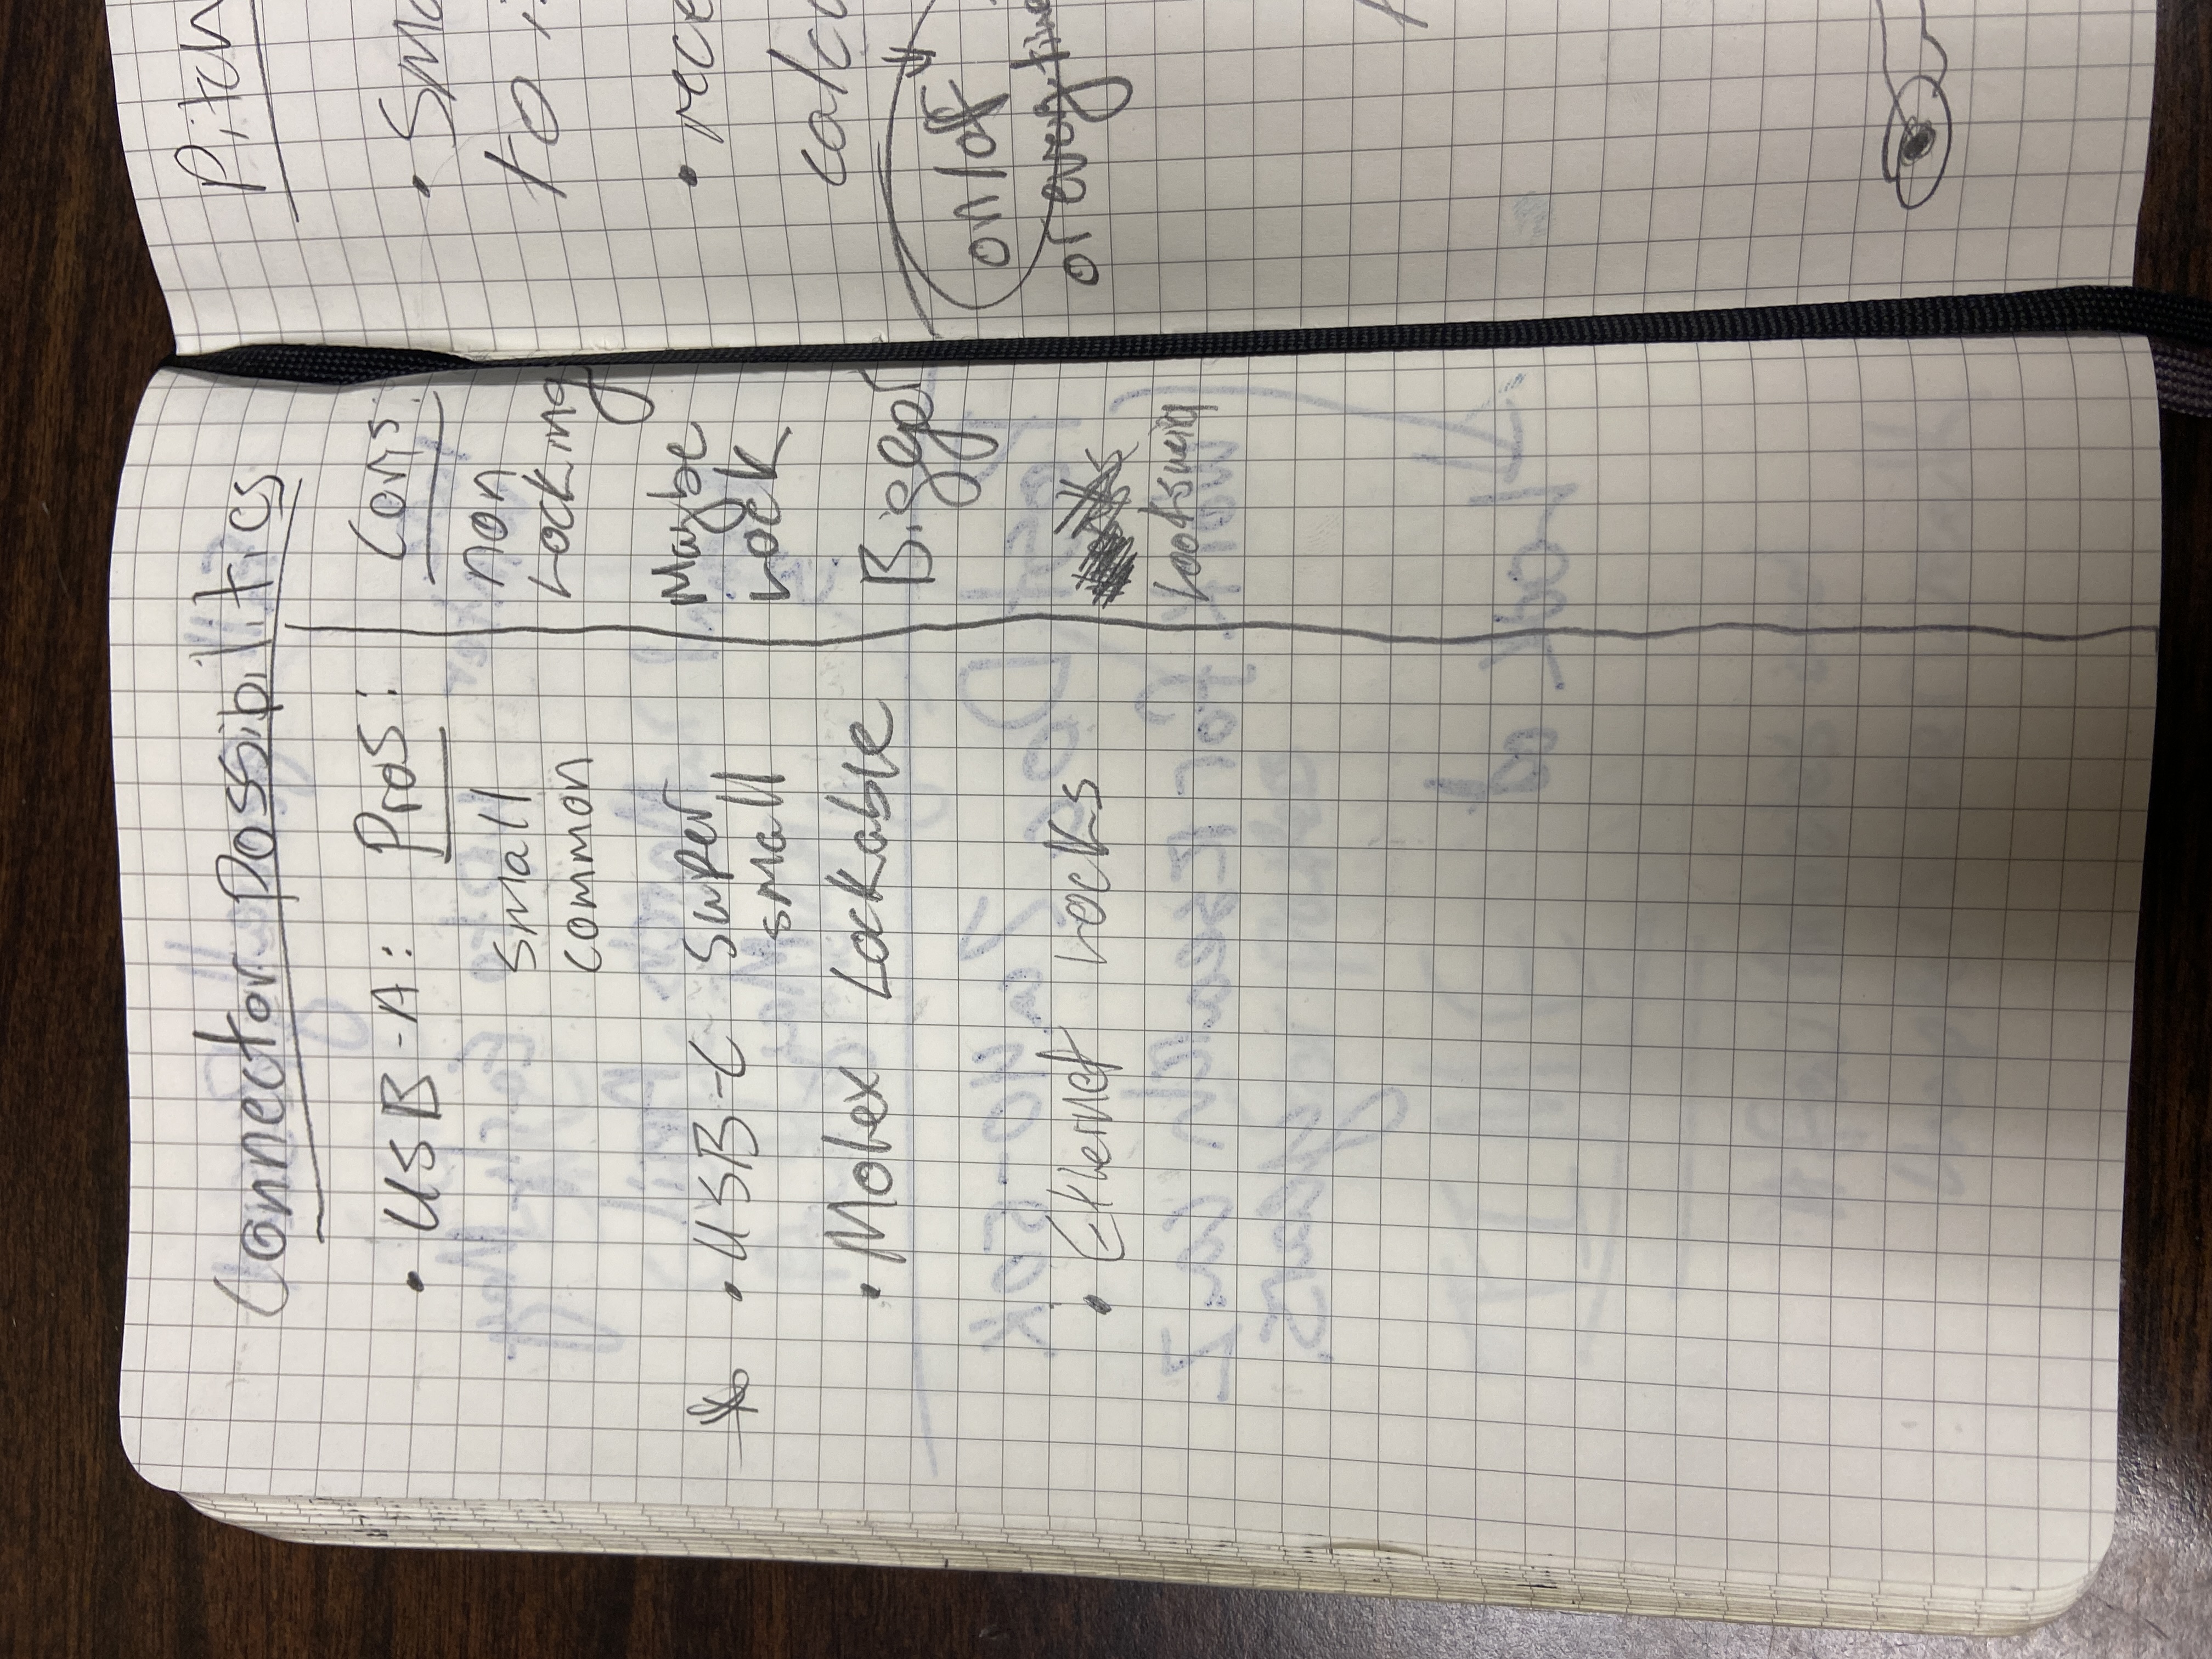 Connector Possibilities
• USB-A: Pros: Cons:
small non
common Locking
• USB-C super Maybe
small Lock
• Molex Lockable Bigger
• Ethernet Locks
Looks
Pitch
• Sma
to i
• rece
calcu
on/off
or every time